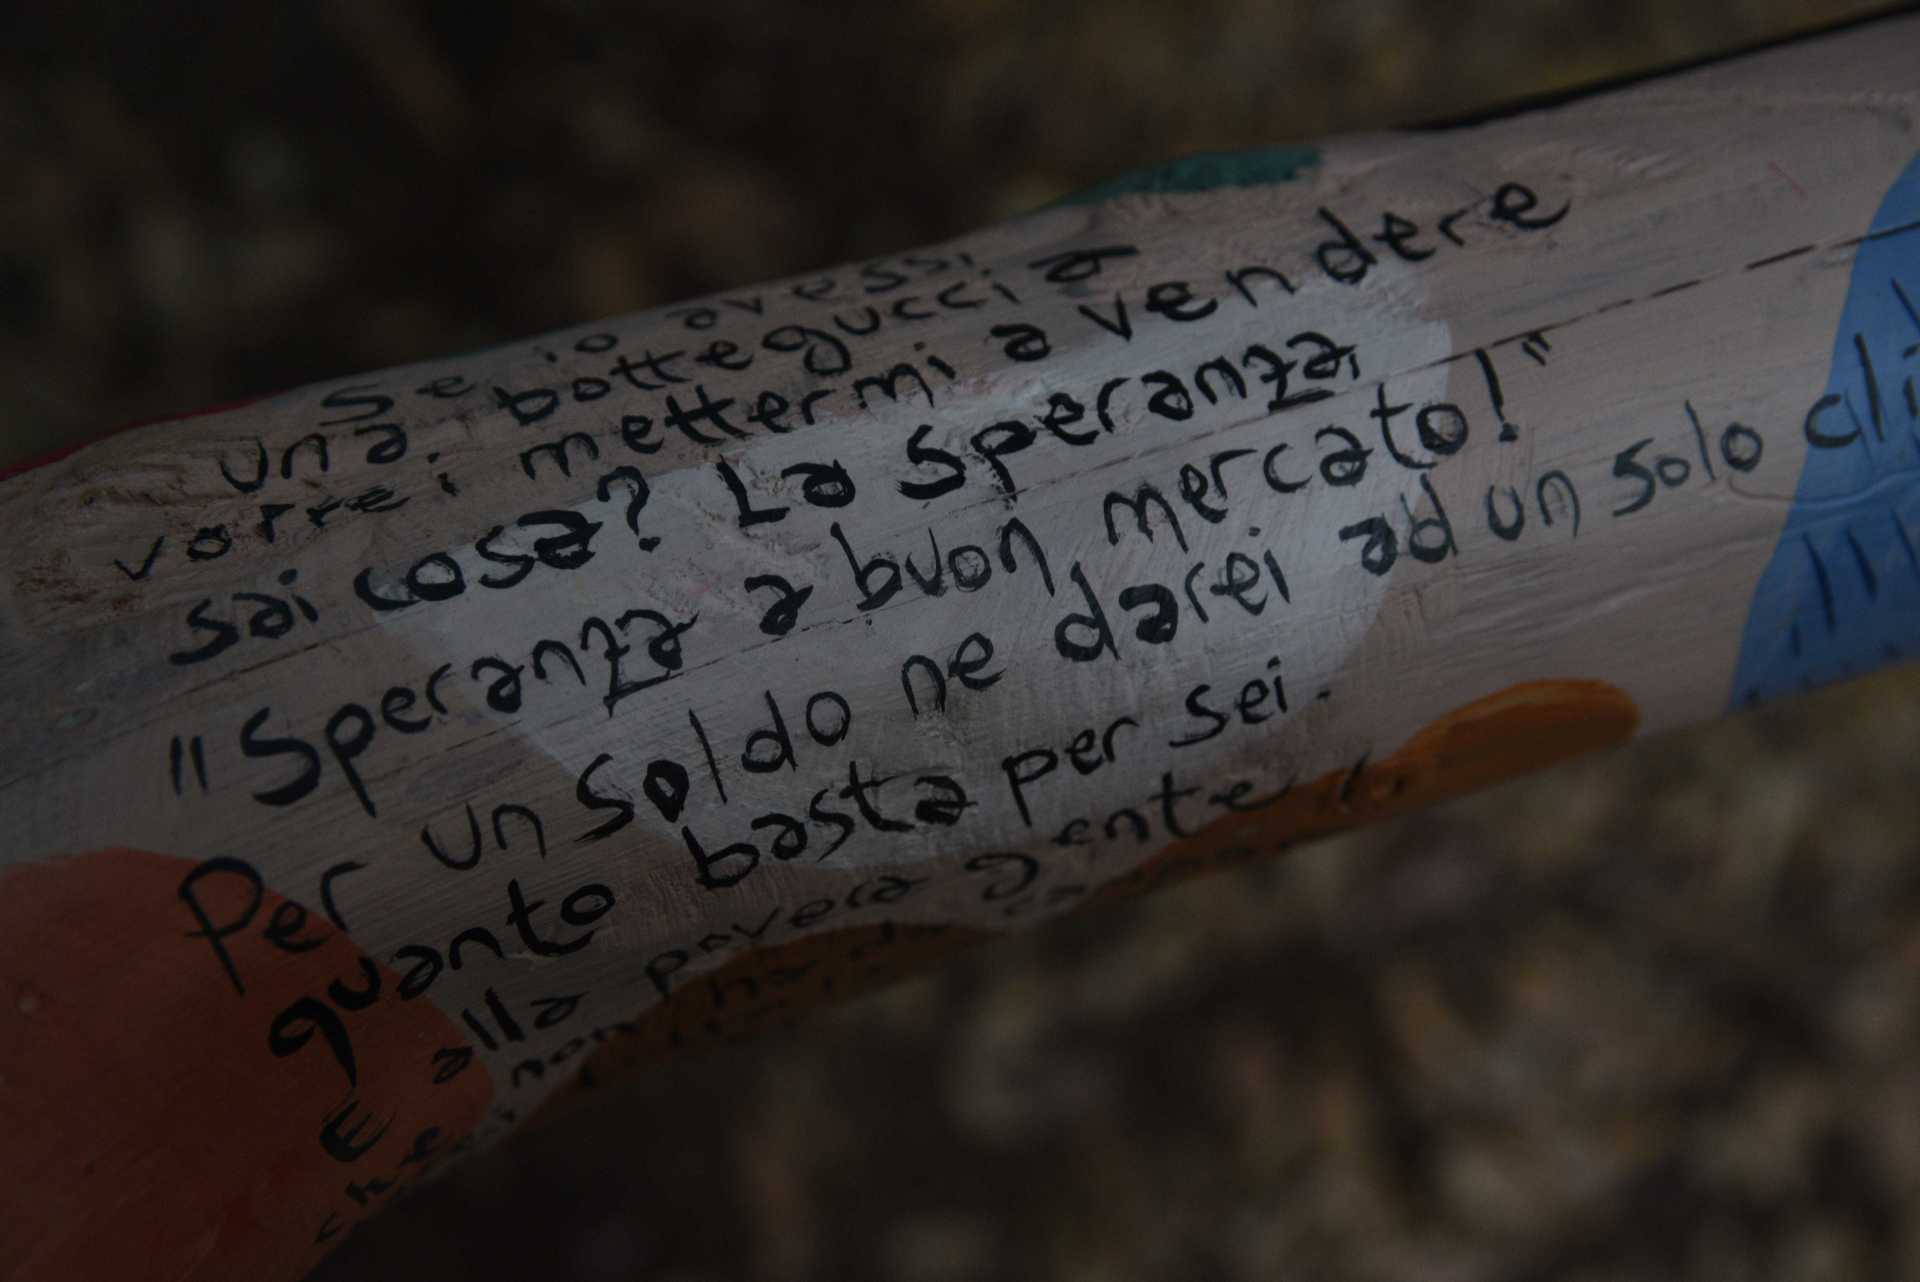 Se io avessi
una bottegucci a
vorrei mettermi a vendere
sai cosa? La speranza,
"Speranza a buon mercato!"
Per un soldo ne darei ad un solo cli
quanto basta per sei.
E alla povera gente
che non ha da